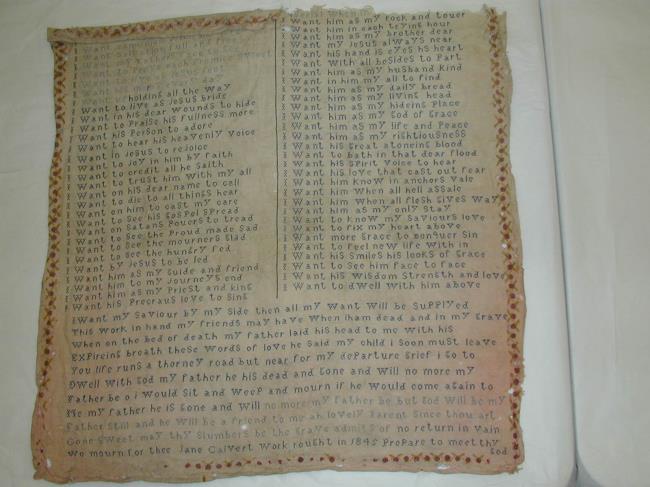 I Want
I Want
I Want
I Want my
I Want to
I Want
I Want his
Want upholding all the Way
I Want to live as Jesus bride
I Want in his dear Wounds to hide
I Want to Praise his fullness more
I Want his Person to adore
I Want to hear his heavenly Voice
I Want in Jesus to rejoice
I Want to Joy in him by faith
I Want to credit all he Saith
I Want to trust him With my all
I Want on his dear name to call
I Want to die to all things hear
I Want on him to cast my care
I Want to See his Gospel spread
I Want on Satans Powers to tread
I Want to See the Proud made Sad
I Want to See the mourners Glad
I Want to See the hungry fed
I Want by Jesus to be led
I Want him as my Guide and friend
I Want him to my Journeys end
I Want him as my Priest and king
I Want his Precraus love to Sing
I Want him as my rock and tower
I Want him in each trying hour
I Want him as my brother dear
I Want my Jesus always near
I Want his hand is eyes hs heart
I Want With all besides to Part
I Want him as my husband kind
I Want in him my all to find
I Want him as my daily bread
I Want him as my living head
I Want him as my hideing Place
I Want him as my God of Grace
I Want him as my life and Peace
I Want him as my rightiousness
I Want his Great atoneing blood
I Want to bath in that dear flood
I Want his Spirit Voice to hear
I Want his love that cast out fear
I Want him know in anchors Vale
I Want him When all hell assale
I Want him When all flesh Gives Way
I Want him as my only Stay
I Want to know my Saviours love
I Want to fix my heart above
I Want more Grace to conquer Sin
I Want to feel new life With in
I Want his Smiles his looks of Grace
I Want to See him face to face
I Want his Wisdom Strength and love
I Want to dwell With him above
I Want my Saviour by my Side then all my Want Will be SuPPlyed
This Work in hand my friends may have When Iham dead and in my Grave
When on the bed of death my father laid his head to me With his
Expireing breath these Words of love he Said my child i Soon must leave
You life runs a thorney road but near for my deParture Grief i Go to
Dwell With God my father he his dead and Gone and Will no more my
Father be o i Would Sit and WeeP and mourn if he Would come again to
Me my father he is Gone and Will no more my Father be but God Will be my
Father Still and he Will be a friend to me ah lovely Parent Since thou art
Gone Sweet may thy Slumbers be the Grave admits of no return in Vain
We mourn for thee Jane Calvert Work rought in 1845 PrePare to meet thy
God